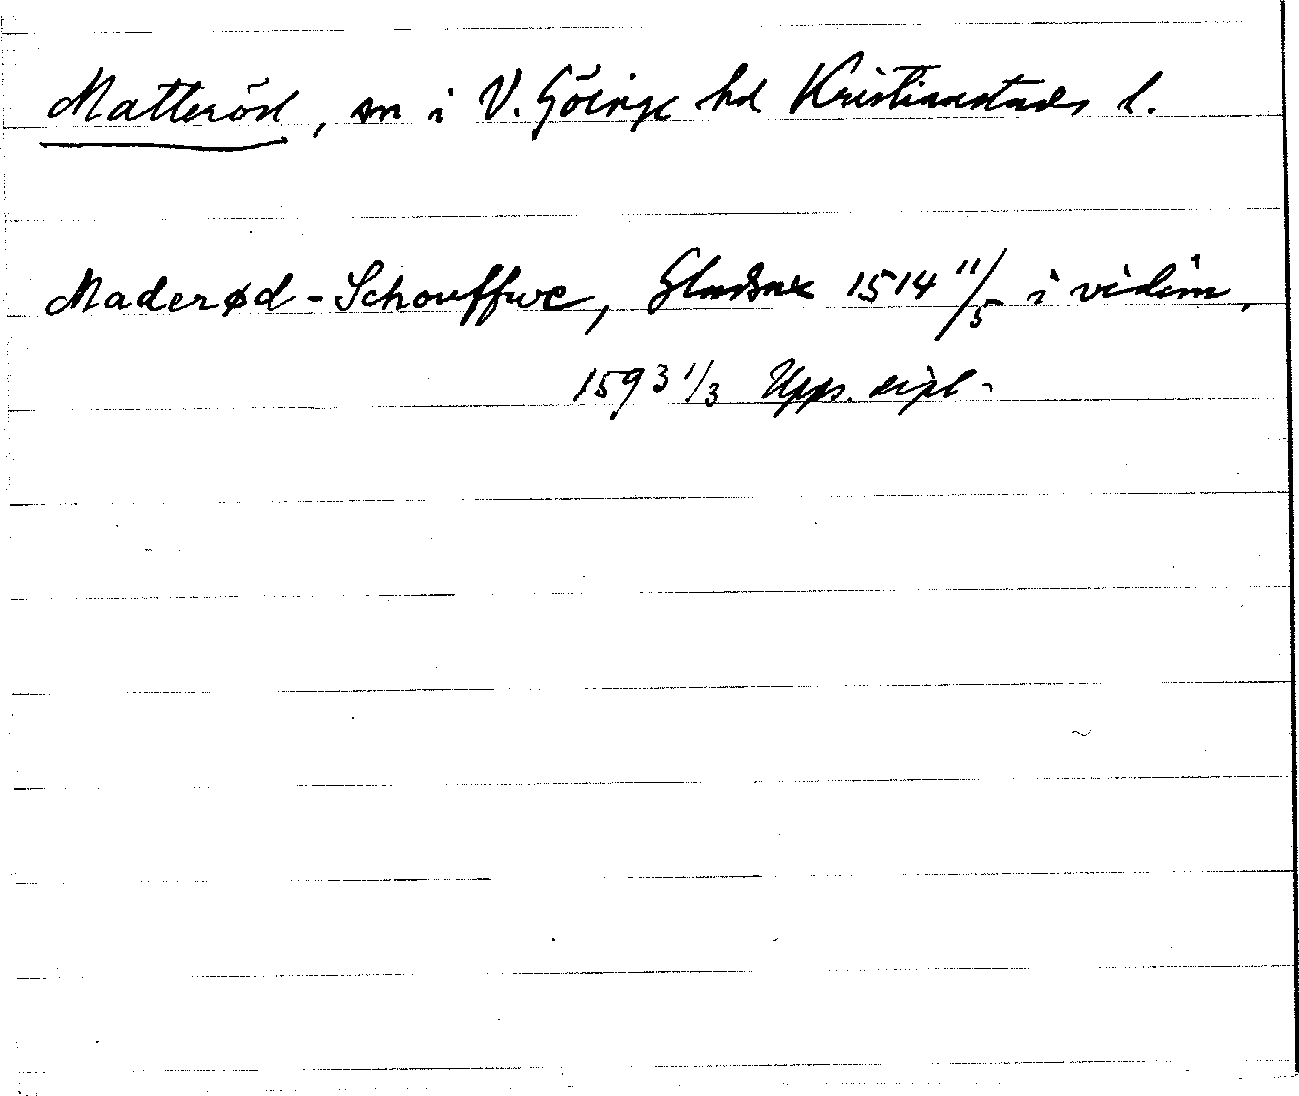 Matteröd, sn i V. Göinge hd Kristianstads l.
Maderød-Schouffwe, Gladsax 1514 11/5 i vidim.
1593 1/3 Upps. dipl.